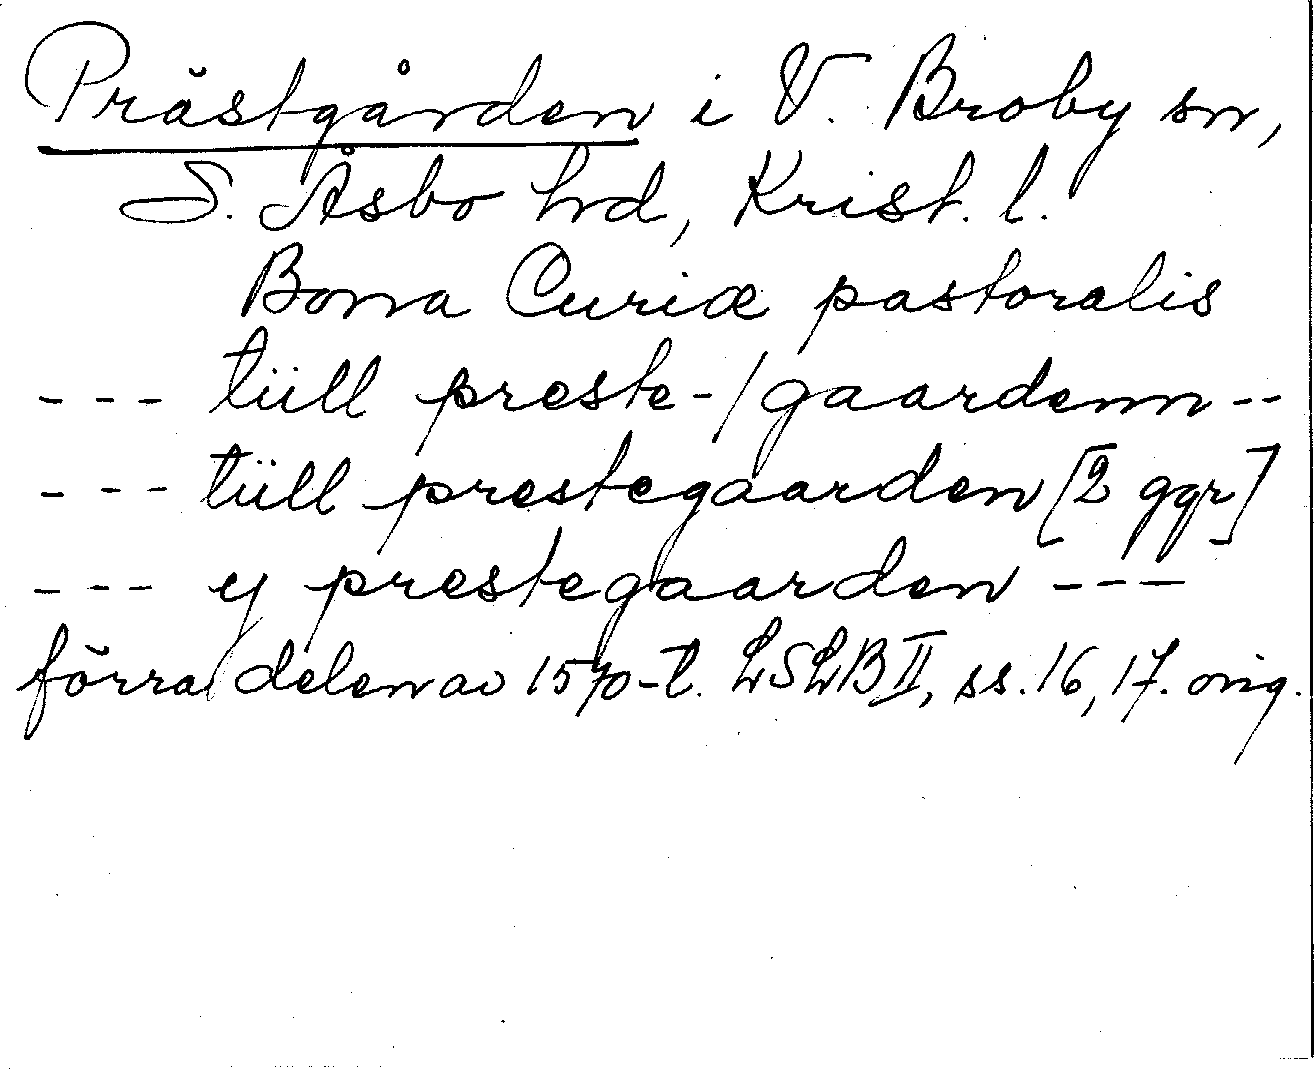 Prästgården i V. Broby sn,
S. Åsbo hd, Krist. l.
Bona Curiæ pastoralis
--- tüll preste-/gaardenn --
--- tüll prestegaarden [2 ggr]
--- y prestegaarden ---
förra delen av 1570-t. LSLB II, ss. 16, 17. orig.